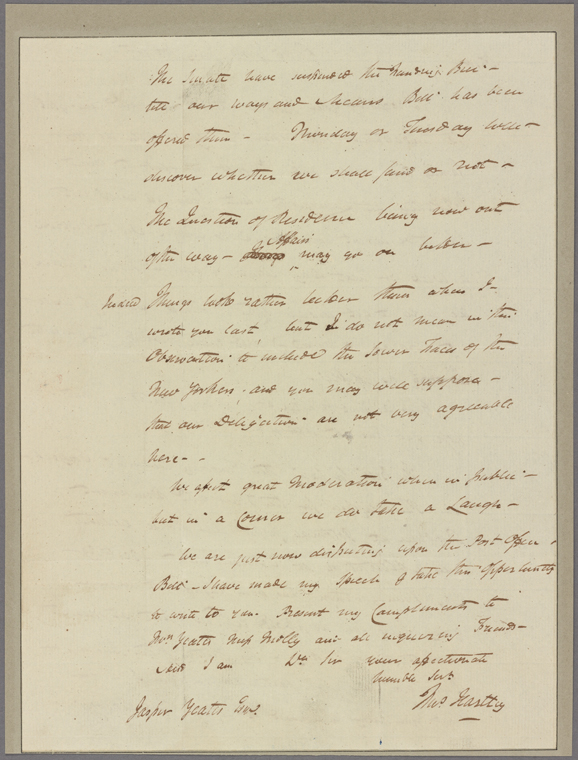 The Senate have suspended the Funding Bill –
till our ways and Means Bill has been
offered them – Monday or Tuesday will –
discover whether we shall fund or not –
The Question of Residence being now out
of the way – Affairs may go on better –
Indeed Things look rather better than when I
wrote you last, but I do not mean in this
Observation to include the sower Faces of the
New Yorkers, and you may well suppose –
that our Delegation are not very agreeable
here –
We affect great Moderation when in public –
but in a Corner we do take a Laugh –
We are just now disputing upon the Post Office
Bill – I have made my Speech & take this Opportunity
to write to you. Present my Compliments to
Mrs Yeates Miss Molly and all enquiring Friends –
And I am Dr Sir your affectionate
humble Servt
Jasper Yeates Esqr. Thos Hartley